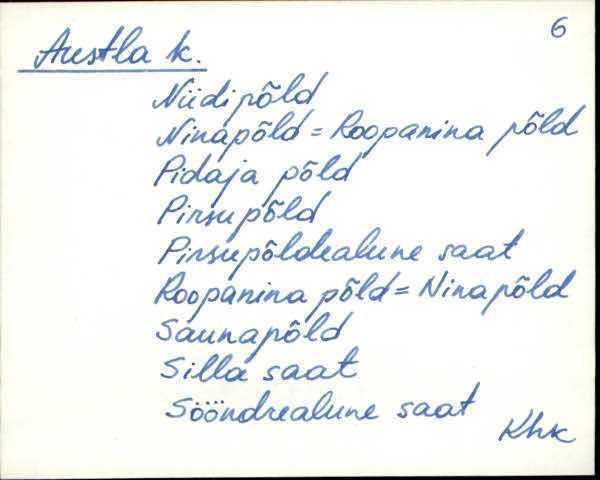 6
Austla k.
Niidipõld
Ninapõld = Roopanina põld
Pidaja põld
Pirsupõld
Pirsupõldealune saat
Roopanina põld = Ninapõld
Saunapõld
Silla saat
Sööndrealune saat
Khk